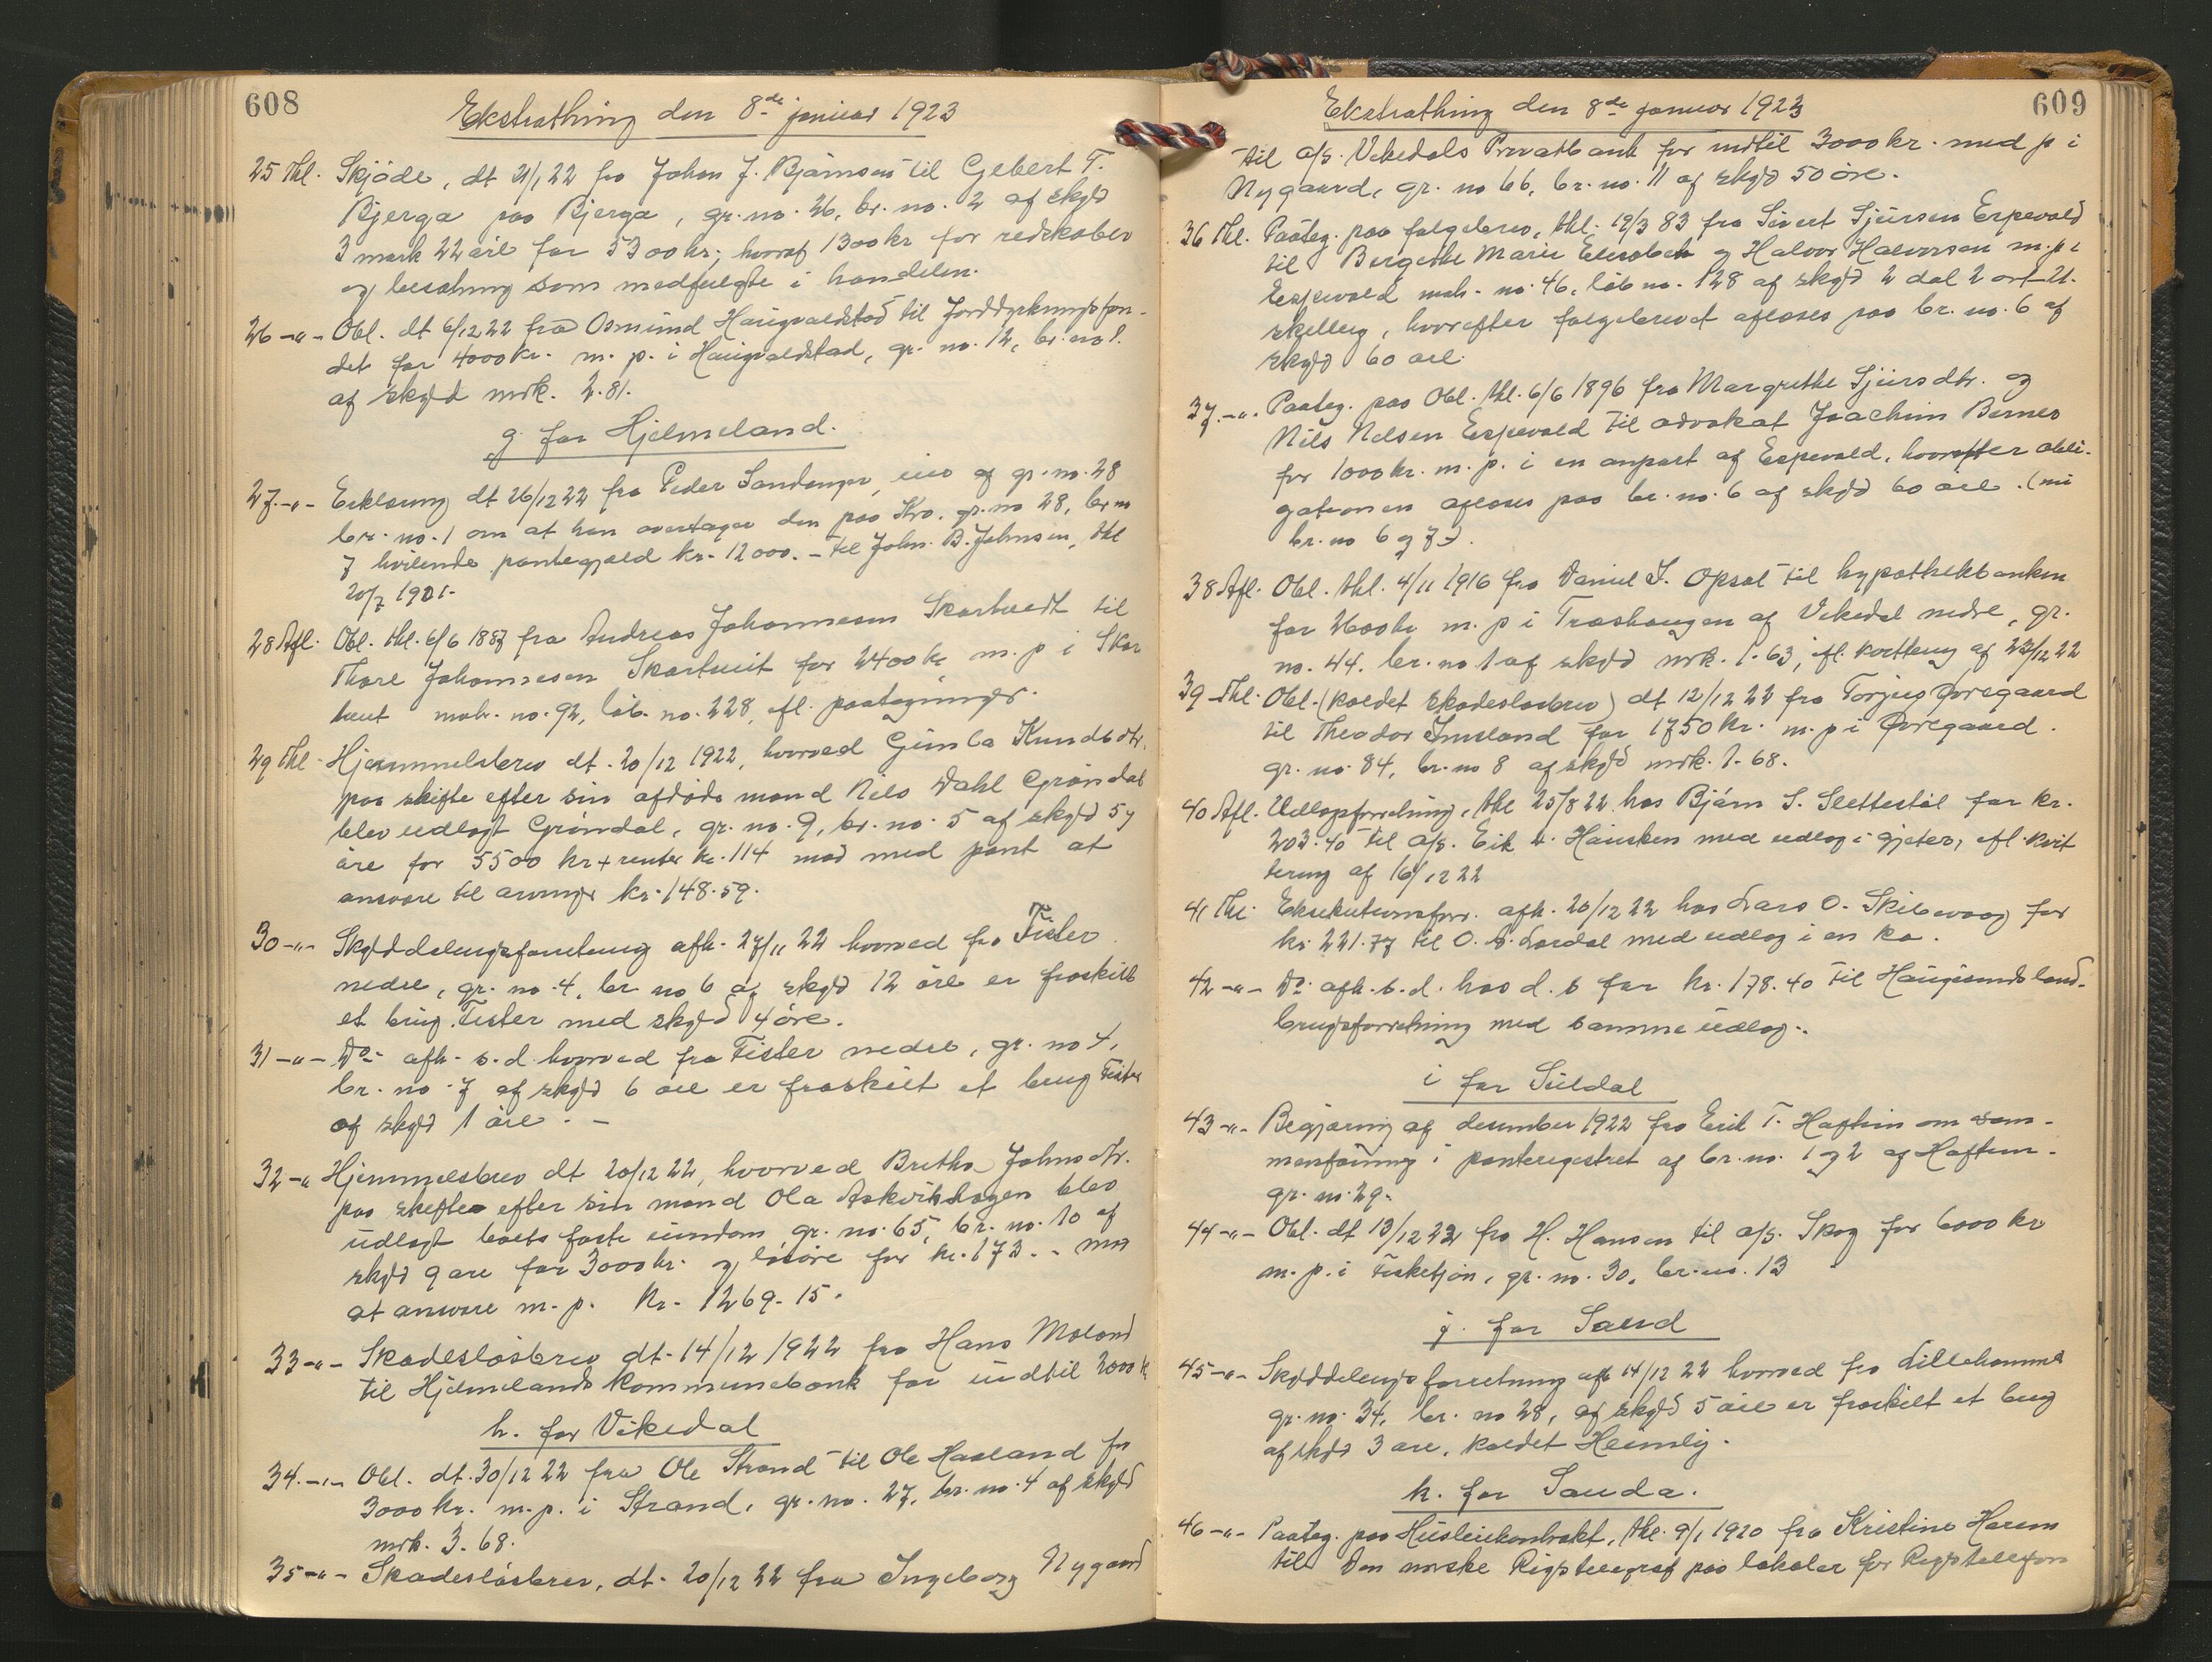 608
Ekstrathing den 8de januar 1923
25 Thl. Skjøde, dt 21/1 22 fra Johan J. Bjørnsen til Gebert T.
Bjerga paa Bjerga, gr. no. 26, br. no. 2 af skyld
3 mark 22 øre for 5300 kr; hvoraf 1300 kr for redskaber
og besætning som medfulgte i handelen.
26 -"- Obl. dt 6/12 22 fra Osmund Haugvaldstad til Jorddyrkningsfon-
det for 4000 kr. m. p. i Haugvaldstad, gr. no. 12, br. no 1.
af skyld mrk. 2.81.
g. for Hjelmeland.
27.-"- Erklæring dt 26/12 22 fra Peder Sandanger, eier af gr. no. 28
br. no. 1 om at han overtager den paa Kro. gr. no 28, br. no
7 hvilende pantegjæld kr. 12000.- til John B. Johnsen, thl
20/7 1921.
28 Afl. Obl. thl. 6/6 1887 fra Andreas Johannesen Skartvedt til
Thore Johannesen Skartveit for 2400 kr m. p i Skar
tveit matr. no. 92, løb. no. 228, efl. paategninger.
29 Thl. Hjemmelsbrev dt. 20/12 1922, hvorved Gunla Knudsdtr.
paa skifte efter sin afdøde mand Nils Dahl Grøndal
blev udlagt Grøndal, gr. no. 9, br. no. 5 af skyld 57
øre for 5500 kr + renter kr. 114 mod med pant at
ansvare til arvinger kr. 148.59.
30 -"- Skylddelingsforretning afh. 27/11 22 hvorved fra Fister
nedre, gr. no. 4, br. no 6 af skyld 12 øre er fraskilt
et brug Fister med skyld 4 øre.
31 -"- Do. afh. s. d. hvorved fra Fister nedre, gr. no 4,
br. no. 7 af skyld 6 øre er fraskilt et brug Fister
af skyld 1 øre. -
32 -" Hjemmelsbrev dt 20/12 22, hvorved Britha Johnsdtr.
paa skifte efter sin mand Ola Askvikhagen blev
udlagt boets faste eiendom gr. no. 65, br. no. 10 af
skyld 9 øre for 3000 kr. og løsøre for kr. 173.- mod
at ansvare m. p. kr. 1269.15.
33 -"- Skadesløsbrev dt. 14/12 1922 fra Hans Moland
til Hjelmelands Kommunebank for indtil 2000 k
h. for Vikedal
34.-"- Obl. dt. 30/12 22 fra Ole Strand til Ole Haaland for
3000 kr. m. p. i Strand, gr. no. 27, br. no. 4 af skyld
mrk. 3.68.
35 -"- Skadesløsbrev, dt. 20/12 22 fra Ingeborg Nygaard
609
Ekstrathing den 8de januar 1923
til a/s. Vikedals Privatbank for indtil 3000 kr. med p i
Nygaard, gr. no 66, br. no. 11 af skyld 50 øre.
36 Thl. Paateg. paa følgebrev, thl. 19/3 83 fra Sivert Sjursen Espevold
til Bergethe Marie Elisabeth og Halvor Halvorsen m. p i
Espevold matr. no. 46, løb no. 128 af skyld 2 dal 2 ort 21.
skilling, hvorefter følgebrevet afløses paa br. no. 6 af
skyld 60 øre.
37.-"- Paateg. paa Obl. thl. 6/6 1896 fra Margrethe Sjursdtr. og
Nils Nilsen Espevold til advokat Joachim Berner
for 1000 kr. m. p. i en anpart af Espevold, hvorefter obli-
gationen afløses paa br. no. 6 af skyld 60 øre. (nu
br. no 6 og 7).
38 Afl. Obl. thl. 4/11 1916 fra Daniel J. Opsal til hypothekbanken
for 2600 kr m. p i Træshaugen af Vikedal nedre, gr.
no. 44. br. no 1 af skyld mrk. 1.63, efl. kvittering af 23/12 22
39 Thl. Obl. (kaldet skadesløsbrev) dt 12/12 22 fra Torjus Øvregaard
til Theodor Imsland for 1750 kr. m. p i Øvregaard.
gr. no. 84, br. no 8 af skyld mrk. 1.68.
40 Afl. Udlægsforretning, thl 25/8 22 hos Bjørn S. Slettestøl for kr.
203.40 til a/s. Eik & Hausken med udlæg i gjeter, efl. kvit
tering af 16/12 22
41 Thl. Eksekutionsforr. afh. 20/12 22 hos Lars O. Skibevaag for
kr. 221.77 til O. S. Lardal med udlæg i en ko.
42 -"- Do. afh. s. d. hos d. s for kr. 178.40 til Haugesunds land-
brugsforretning med samme udlæg..
i for Suldal
43 -"- Begjæring af desember 1922 fra Erik T. Haftun om sam-
menføining i panteregistret af br. no. 1 og 2 af Haftun.
gr. no. 29.
44 -"- Obl. dt 13/12 22 fra H. Hansen til a/s. Skog for 6000 kr
m. p. i Fisketjøn, gr. no. 30, br. no. 13
j. for Sand
45 -"- Skylddelingsforretning afh 14/12 22 hvorved fra Lillehammer
gr. no. 34, br. no 28, af skyld 5 øre er fraskilt et brug
af skyld 3 øre, kaldet Heimly.
k. for Sauda.
46 -"- Paateg. paa Husleiekontrakt, thl. 9/1 1920 fra Kristine Harem
til Den norske Rigstelegraf paa lokaler for Rigstelefon